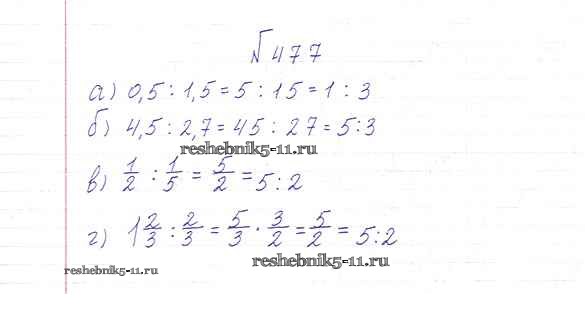 №477
а) 0,5 : 1,5 = 5 : 15 = 1 : 3
б) 4,5 : 2,7 = 45 : 27 = 5 : 3
reshebnik5-11.ru
в) 1/2 : 1/5 = 5/2 = 5 : 2
г) 1 2/3 : 2/3 = 5/3 · 3/2 = 5/2 = 5 : 2
reshebnik5-11.ru
reshebnik5-11.ru